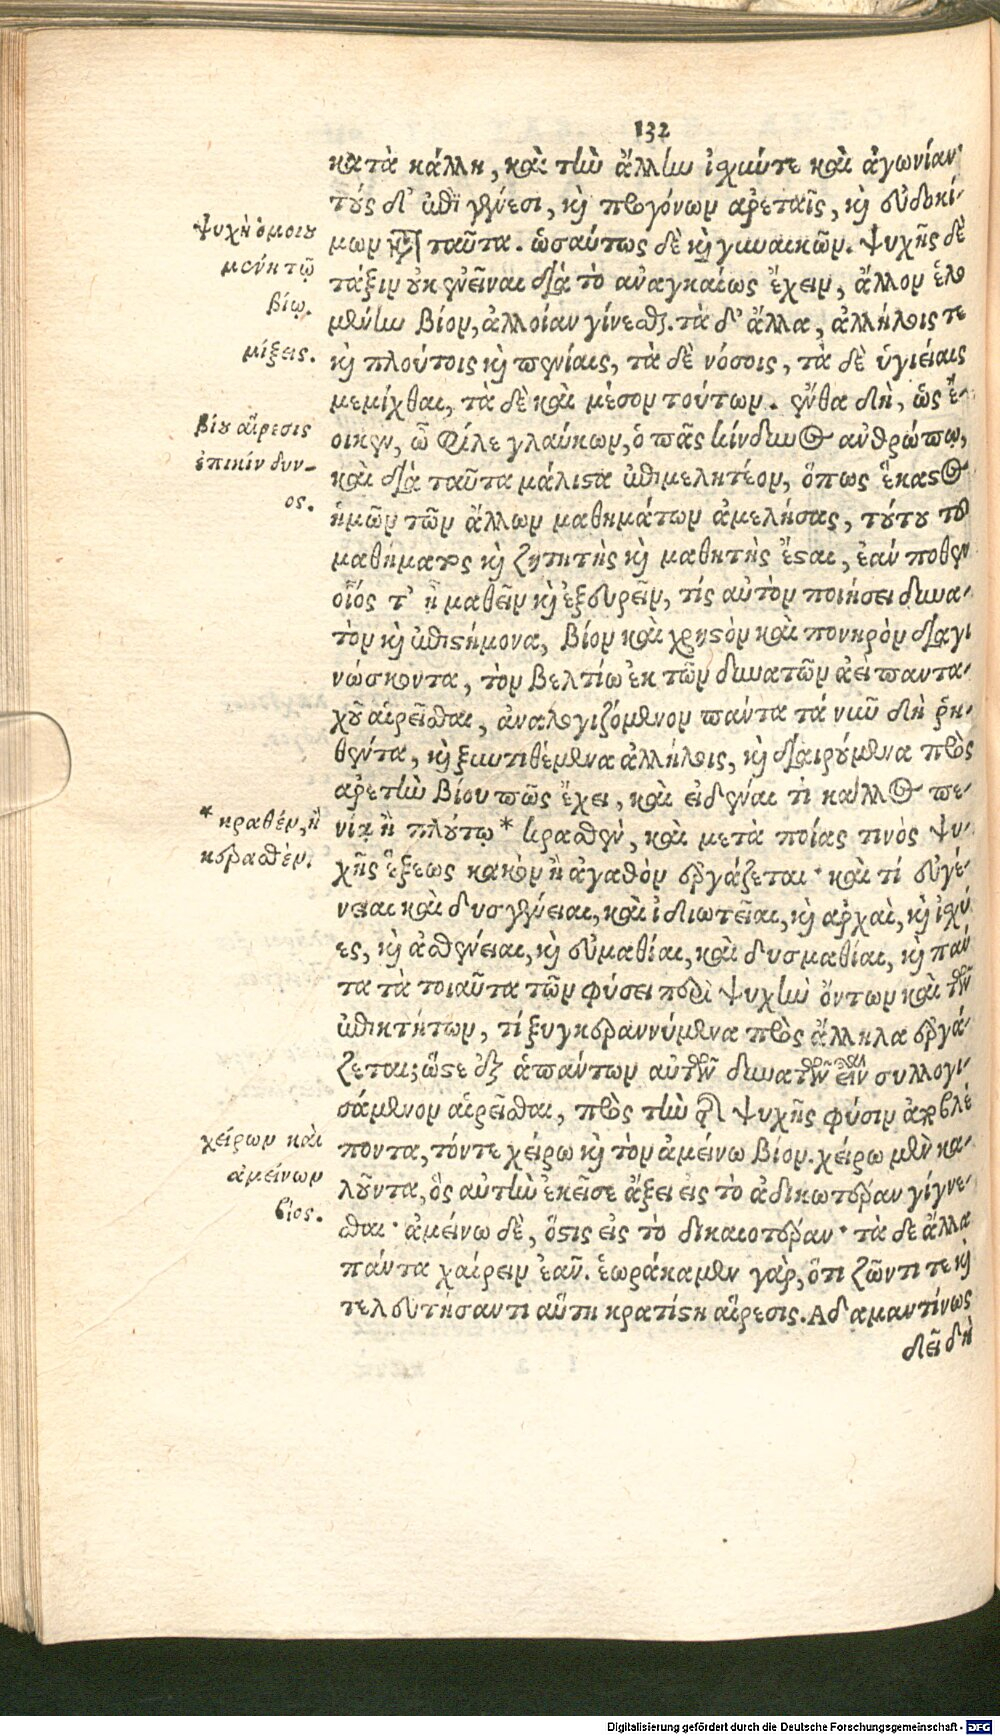 132
κατὰ κάλλη, καὶ τὴν ἄλλην ἰσχύν τε καὶ ἀγωνίαν·
τοὺς δ' ἐπὶ γένεσι, καὶ προγόνων ἀρεταῖς, καὶ εὐδοκί-
ψυχὴ ὁμοιου
μων κατὰ ταῦτα. ὡσαύτως δὲ καὶ γυναικῶν. ψυχῆς δὲ
μένη τῷ
τάξιν οὐκ ἐνεῖναι διὰ τὸ ἀναγκαίως ἔχειν, ἄλλον ἑλο
βίῳ.
μένην βίον, ἀλλοίαν γίνεσθαι. τὰ δ' ἄλλα, ἀλλήλοις τε
μίξεις.
καὶ πλούτοις καὶ πενίαις, τὰ δὲ νόσοις, τὰ δὲ ὑγιείαις
μεμίχθαι, τὰ δὲ καὶ μέσον τούτων. ἔνθα δὴ, ὡς ἔ-
βίου αἵρεσις
οικεν, ὦ φίλε γλαύκων, ὁ πᾶς κίνδυνος ἀνθρώπῳ,
ἐπικίνδυν-
καὶ διὰ ταῦτα μάλιστα ἐπιμελητέον, ὅπως ἕκαστος
ος.
ἡμῶν τῶν ἄλλων μαθημάτων ἀμελήσας, τούτου τοῦ
μαθήματος καὶ ζητητὴς καὶ μαθητὴς ἔσται, ἐάν ποθεν
οἷός τ' ᾖ μαθεῖν καὶ ἐξευρεῖν, τίς αὐτὸν ποιήσει δυνα-
τὸν καὶ ἐπιστήμονα, βίον καὶ χρηστὸν καὶ πονηρὸν διαγι
νώσκοντα, τὸν βελτίω ἐκ τῶν δυνατῶν ἀεὶ παντα-
χοῦ αἱρεῖσθαι, ἀναλογιζόμενον πάντα τὰ νῦν δὴ ῥη-
θέντα, καὶ ξυντιθέμενα ἀλλήλοις, καὶ διαιρούμενα πρὸς
ἀρετὴν βίου πῶς ἔχει, καὶ εἰδέναι τί κάλλος πε-
* κραθέν, ἢ
νίᾳ ἢ πλούτῳ * κρασθὲν, καὶ μετὰ ποίας τινὸς ψυ-
κερασθέν.
χῆς ἕξεως κακὸν ἢ ἀγαθὸν ἐργάζεται· καὶ τί εὐγέ-
νειαι καὶ δυσγένειαι, καὶ ἰδιωτεῖαι, καὶ ἀρχαὶ, καὶ ἰσχύ
ες, καὶ ἀσθένειαι, καὶ εὐμαθίαι, καὶ δυσμαθίαι, καὶ πάν
τα τὰ τοιαῦτα τῶν φύσει περὶ ψυχὴν ὄντων καὶ τῶν
ἐπικτήτων, τί ξυγκεραννύμενα πρὸς ἄλληλα ἐργά-
ζεται; ὥστε ἐξ ἁπάντων αὐτῶν δυνατὸν εἶναι συλλογι-
σάμενον αἱρεῖσθαι, πρὸς τὴν τῆς ψυχῆς φύσιν ἀποβλέ
χείρων καὶ
ποντα, τόν τε χείρω καὶ τὸν ἀμείνω βίον. χείρω μὲν κα-
ἀμείνων
λοῦντα, ὃς αὐτὴν ἐκεῖσε ἄξει εἰς τὸ ἀδικωτέραν γίγνε-
βίος.
σθαι· ἀμείνω δὲ, ὅστις εἰς τὸ δικαιοτέραν· τὰ δὲ ἄλλα
πάντα χαίρειν ἐᾶν. ἑωράκαμεν γὰρ, ὅτι ζῶντι τε καὶ
τελευτήσαντι αὕτη κρατίστη αἵρεσις. Ἀδαμαντίνως
δεῖ δὴ
Digitalisierung gefördert durch die Deutsche Forschungsgemeinschaft - DFG